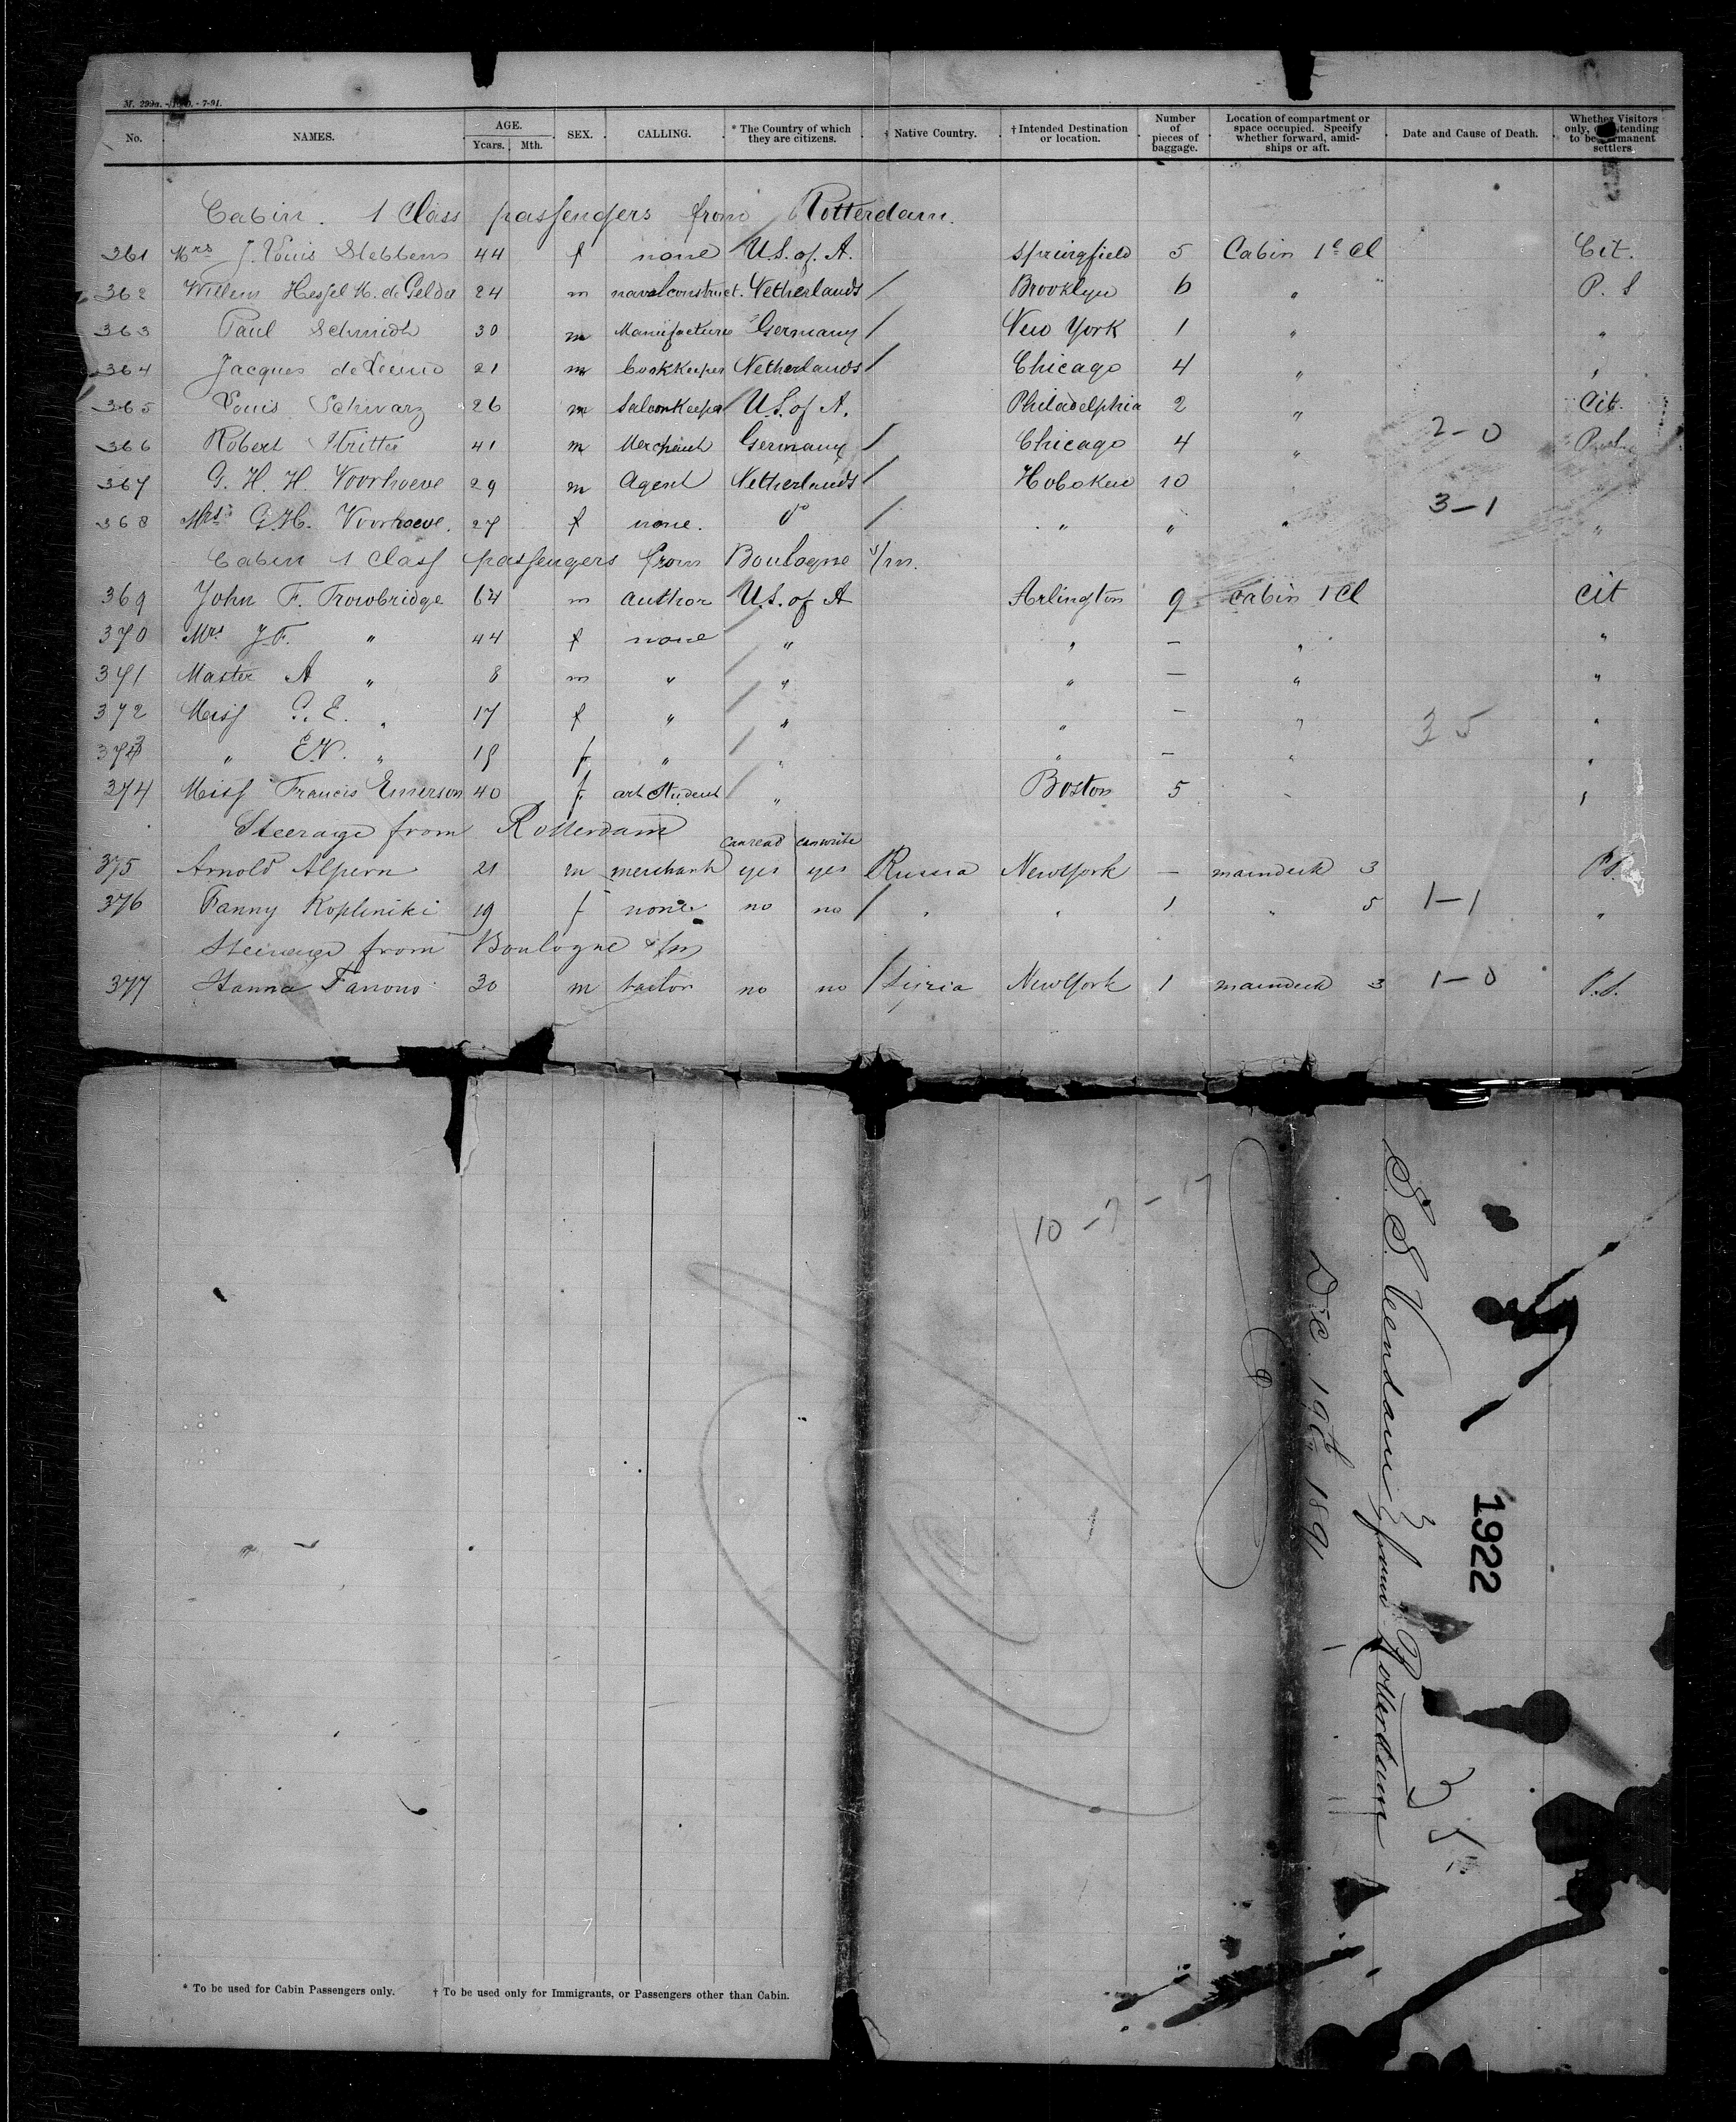 M. 299a. - 7-91.
No. NAMES. AGE. Years. Mth. SEX. CALLING. * The Country of which they are citizens. † Native Country. † Intended Destination or location. Number of pieces of baggage. Location of compartment or space occupied. Specify whether forward, amidships or aft. Date and Cause of Death. Whether Visitors only, or intending to be permanent settlers
Cabin. 1 Class passengers from Rotterdam.
361 Mrs J. Louis Stebbens 44 f none U.S. of A. Springfield 5 Cabin 1e Cl Cit.
362 Willem Hessel H. de Gelder 24 m naval construct. Netherlands / Brooklyn 6 " P. S
363 Paul Schmidt 30 m Manufacturer Germany / New York 1 " "
364 Jacques de 21 m bookkeeper Netherlands / Chicago 4 " "
365 Louis Schwarz 26 m Saloonkeeper U.S. of A. Philadelphia 2 " Cit.
366 Robert Stritter 41 m Merchant Germany / Chicago 4 " 2-0
367 G. H. H. Voorhoeve 29 m agent Netherlands / Hoboken 10
368 Mrs G.H. Voorhoeve. 27 f none. do / " " " 3-1 "
Cabin 1 Class passengers from Boulogne s/m.
369 John F. Trowbridge 64 m author U.S. of A Arlington 9 Cabin 1 Cl Cit
370 Mrs J.F. " 44 f none " " — " "
371 Master A " 8 m " " " — " "
372 Miss G. E. " 17 f " " " — " "
373 " E.V. " 15 f. " " " — " "
35
374 Miss Francis Emerson 40 f. art Student " Boston 5 " "
Steerage from Rotterdam can read can write
375 Arnold Alpern 21 m merchant yes yes Russia New York — maindeck 3 P.S.
376 Fanny Kopliniki 19 f none no no / " " 1 " 5 1-1 "
Steerage from Boulogne s/m
377 Hanna Fanous 30 m tailor no no / Syria New York 1 maindeck 3 1-0 P.S.
10-7-17
S. S. Veendam from Rotterdam
Dec. 19th 1891
1922
35
* To be used for Cabin Passengers only. † To be used only for Immigrants, or Passengers other than Cabin.